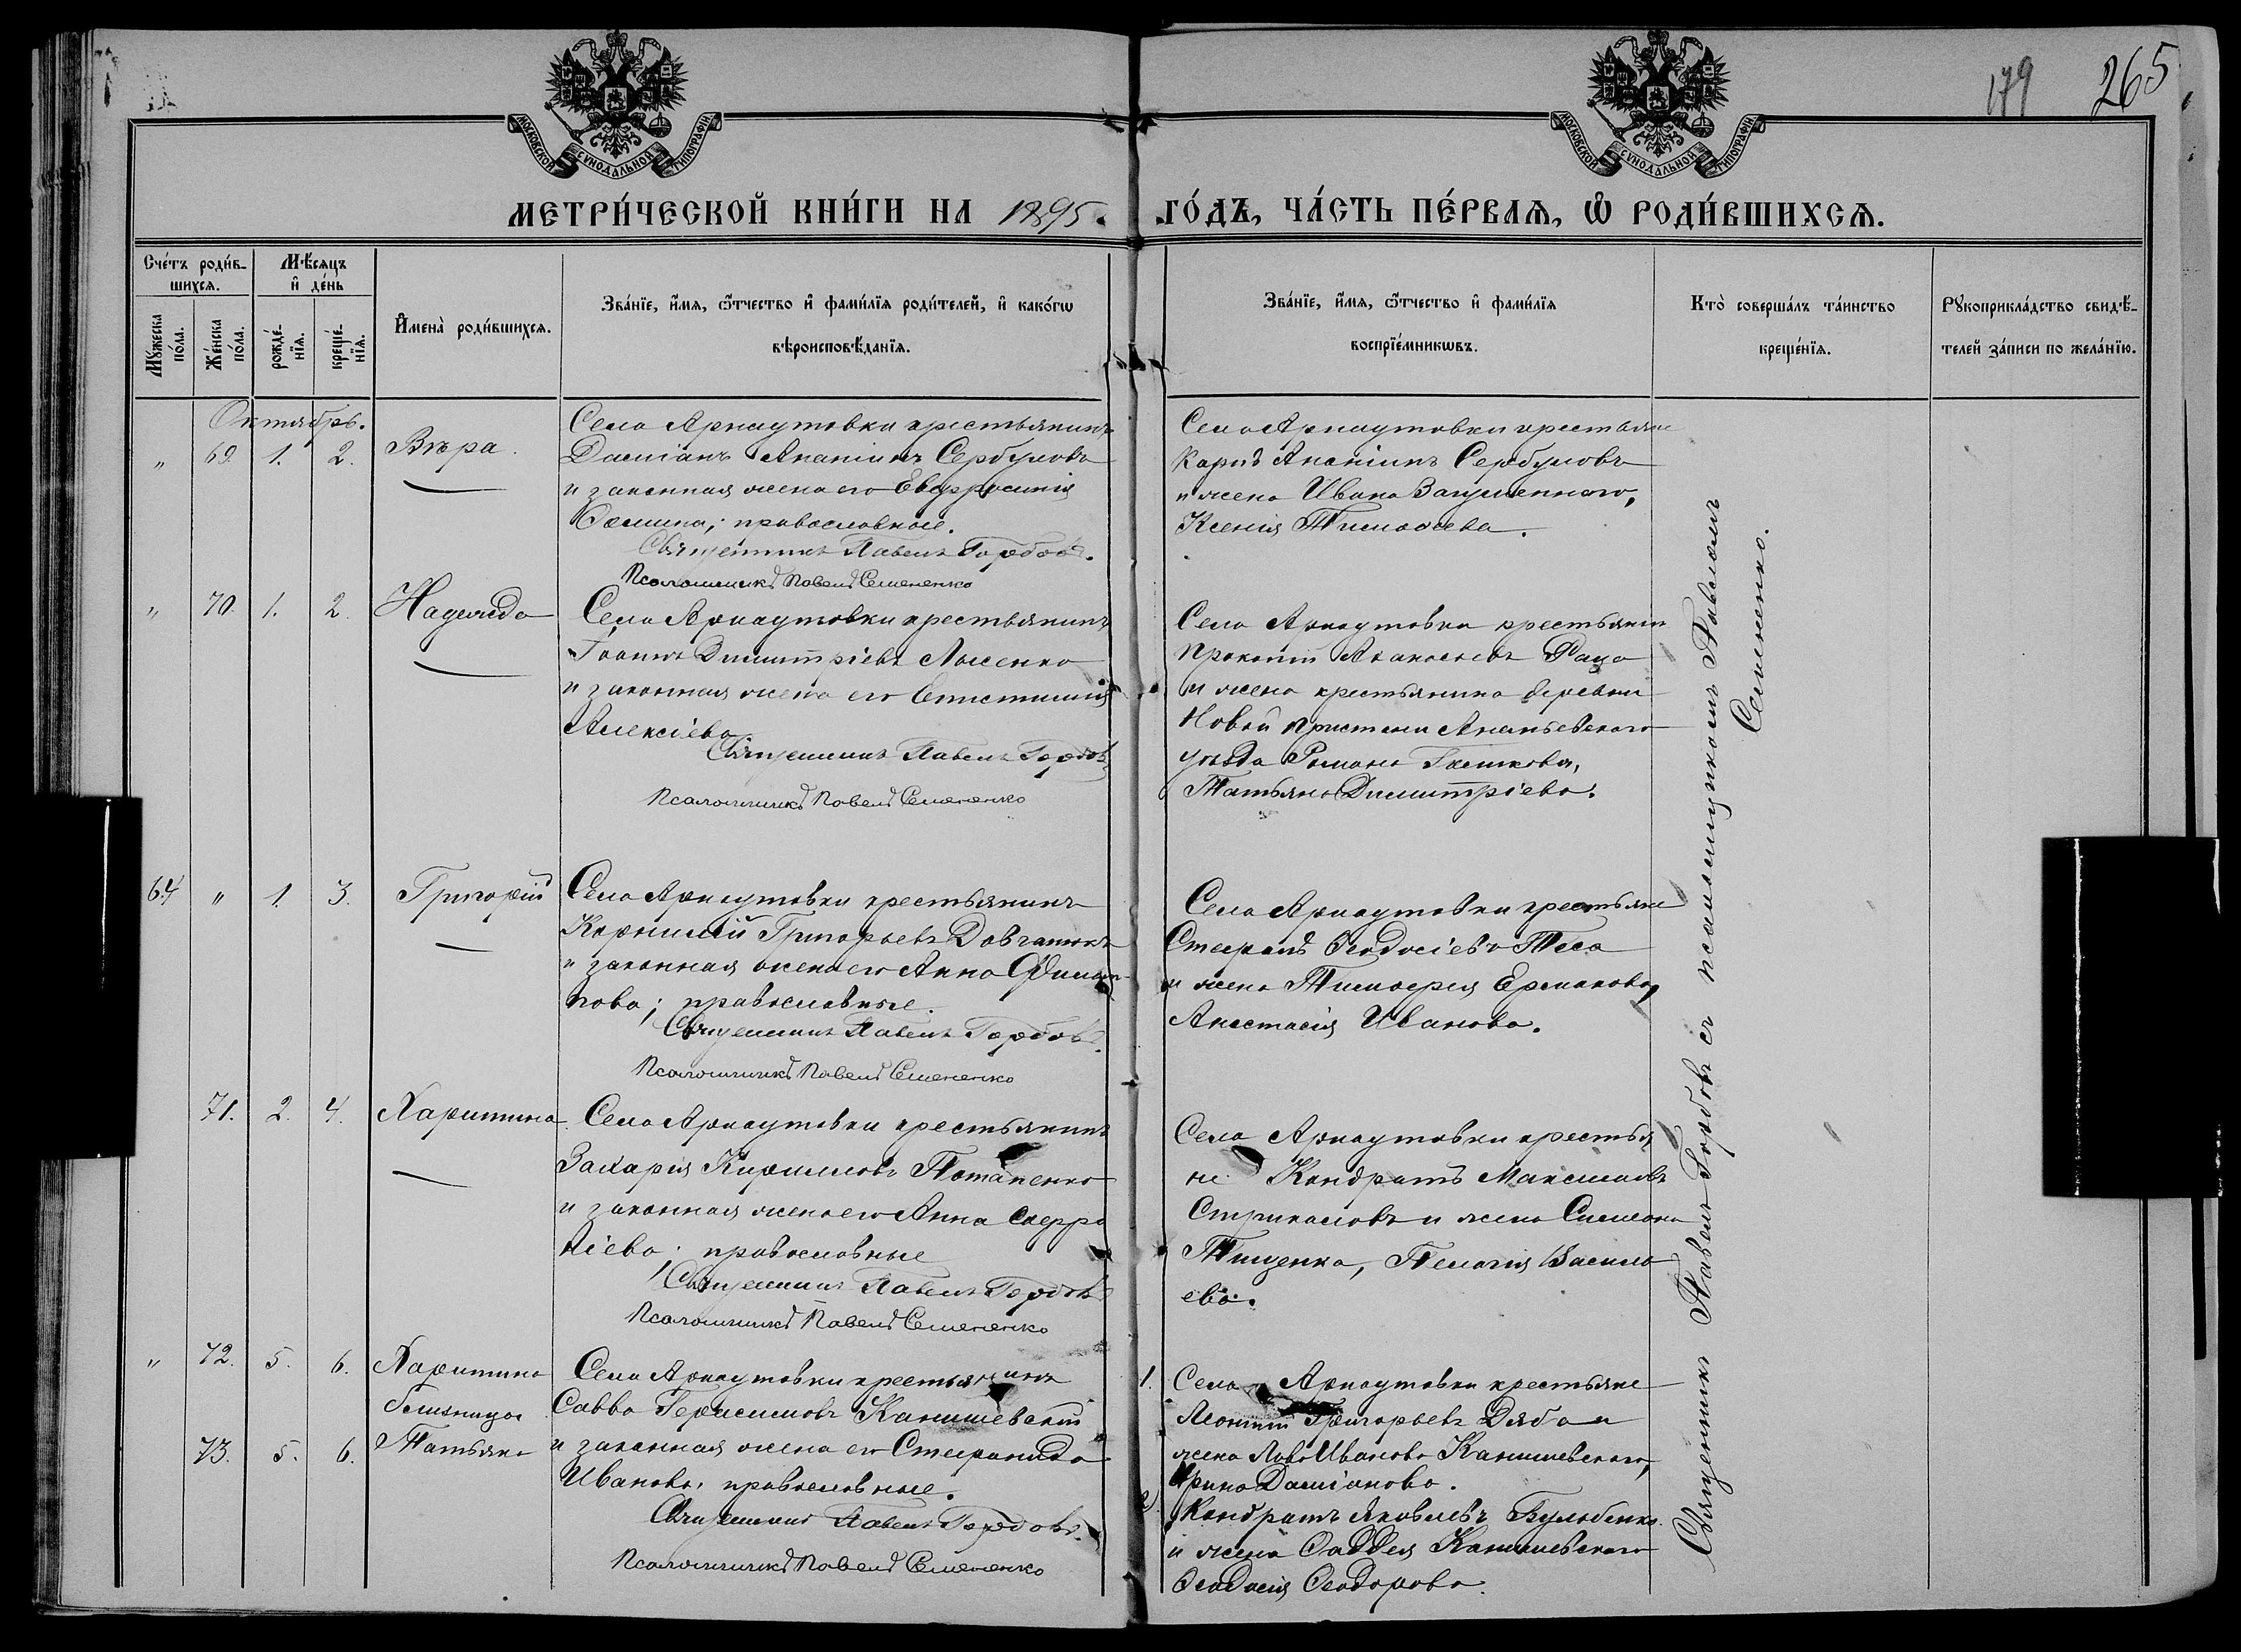 179 265
МОСКОВСКОЙ СѴНОДАЛЬНОЙ ТИПОГРАФІИ
МОСКОВСКОЙ СѴНОДАЛЬНОЙ ТИПОГРАФІИ
МЕТРИ́ЧЕСКОЙ КНИ́ГИ НА 1895. ГО́ДЪ, ЧА́СТЬ ПЕ́РВАѦ, Ѡ҆ РОДИ́ВШИХСѦ.
Сче́тъ роди́в-
шихсѧ.
Мꙋжеска по́ла.
Же́нска по́ла.
Мѣ́сяцъ
и҆ де́нь
рожде́-
нїѧ.
креще́-
нїѧ.
И҆мена̀ роди́вшихсѧ.
Зва́нїе, и҆́мѧ, ѻ҆́тчество и҆ фами́лїѧ роди́телей, и҆ како́гѡ
вѣроисповѣ́данїѧ.
Зва́нїе, и҆́мѧ, ѻ҆́тчество и҆ фами́лїѧ
воспрїе́мникѡвъ.
Кто̀ соверша́лъ та́инство
креще́нїѧ.
Рꙋкоприкла́дство свидѣ́-
телей за́писи по жела́нїю.
Октябрь.
„ 69. 1. 2. Вѣра.
Села Арнаутовки крестьянинъ
Даміанъ Ананіинъ Сербуловъ
и законная жена его Евфросинія
Ѳомина; православные.
Священникъ Павелъ Горбовъ.
Псаломщикъ Павелъ Семененко
Села Арнаутовки крестьяне
Карпъ Ананіинъ Сербуловъ
и жена Ивана Загуменнаго,
Ксенія Тимоѳеева.
„ 70. 1. 2. Надежда
Села Арнаутовки крестьянинъ
Іоаннъ Димитріевъ Лысенко
и законная жена его Епистимія
Алексіева
Священникъ Павелъ Горбовъ
Псаломщикъ Павелъ Семененко
Села Арнаутовки крестьянин
Прокопій Аѳанасьевъ Раца
и жена крестьянина деревни
Новой Пристани Ананьевскаго
уѣзда Романа
Татьяна Димитріева.
64 „ 1. 3. Григорій
Села Арнаутовки крестьянинъ
Корнилій Григорьевъ
и законная жена его Анна Филип-
пова; православные.
Священникъ Павелъ Горбовъ.
Псаломщикъ Павелъ Семененко
Села Арнаутовки крестьяне
Стефанъ Ѳеодосіевъ Теса
и жена Тимофея Ермакова,
Анастасія Иванова.
71. 2. 4. Харитина.
Села Арнаутовки крестьянинъ
Захарія Кирилловъ Потапенко
и законная жена его Анна Серра
піева; православные
Священникъ Павелъ Горбовъ
Псаломщикъ Павелъ Семененко
Села Арнаутовки крестья
не Кондратъ Максимовъ
Стукаловъ и жена Симеона
Тищенка, Пелагія Василь
ева.
„ 72. 5. 6. Харитина
близницы
73. 5. 6. Татьяна
Села Арнаутовки крестьянинъ
Савва Герасимовъ Канишевскій
и законная жена его Стефанида
Иванова, православные.
Священникъ Павелъ Горбовъ.
Псаломщикъ Павелъ Семененко
1. Села Арнаутовки крестьяне
Леонтій Григорьевъ Дяба и
жена Льва Иванова Канишевскаго,
Ирина Даміанова.
2 Кондратъ Яковлевъ Бульбенко
и жена Ѳаддея Канишевскаго
Ѳеодосія Ѳеодорова.
Священникъ Павелъ Горбовъ съ псаломщикомъ Павломъ
Семененко.